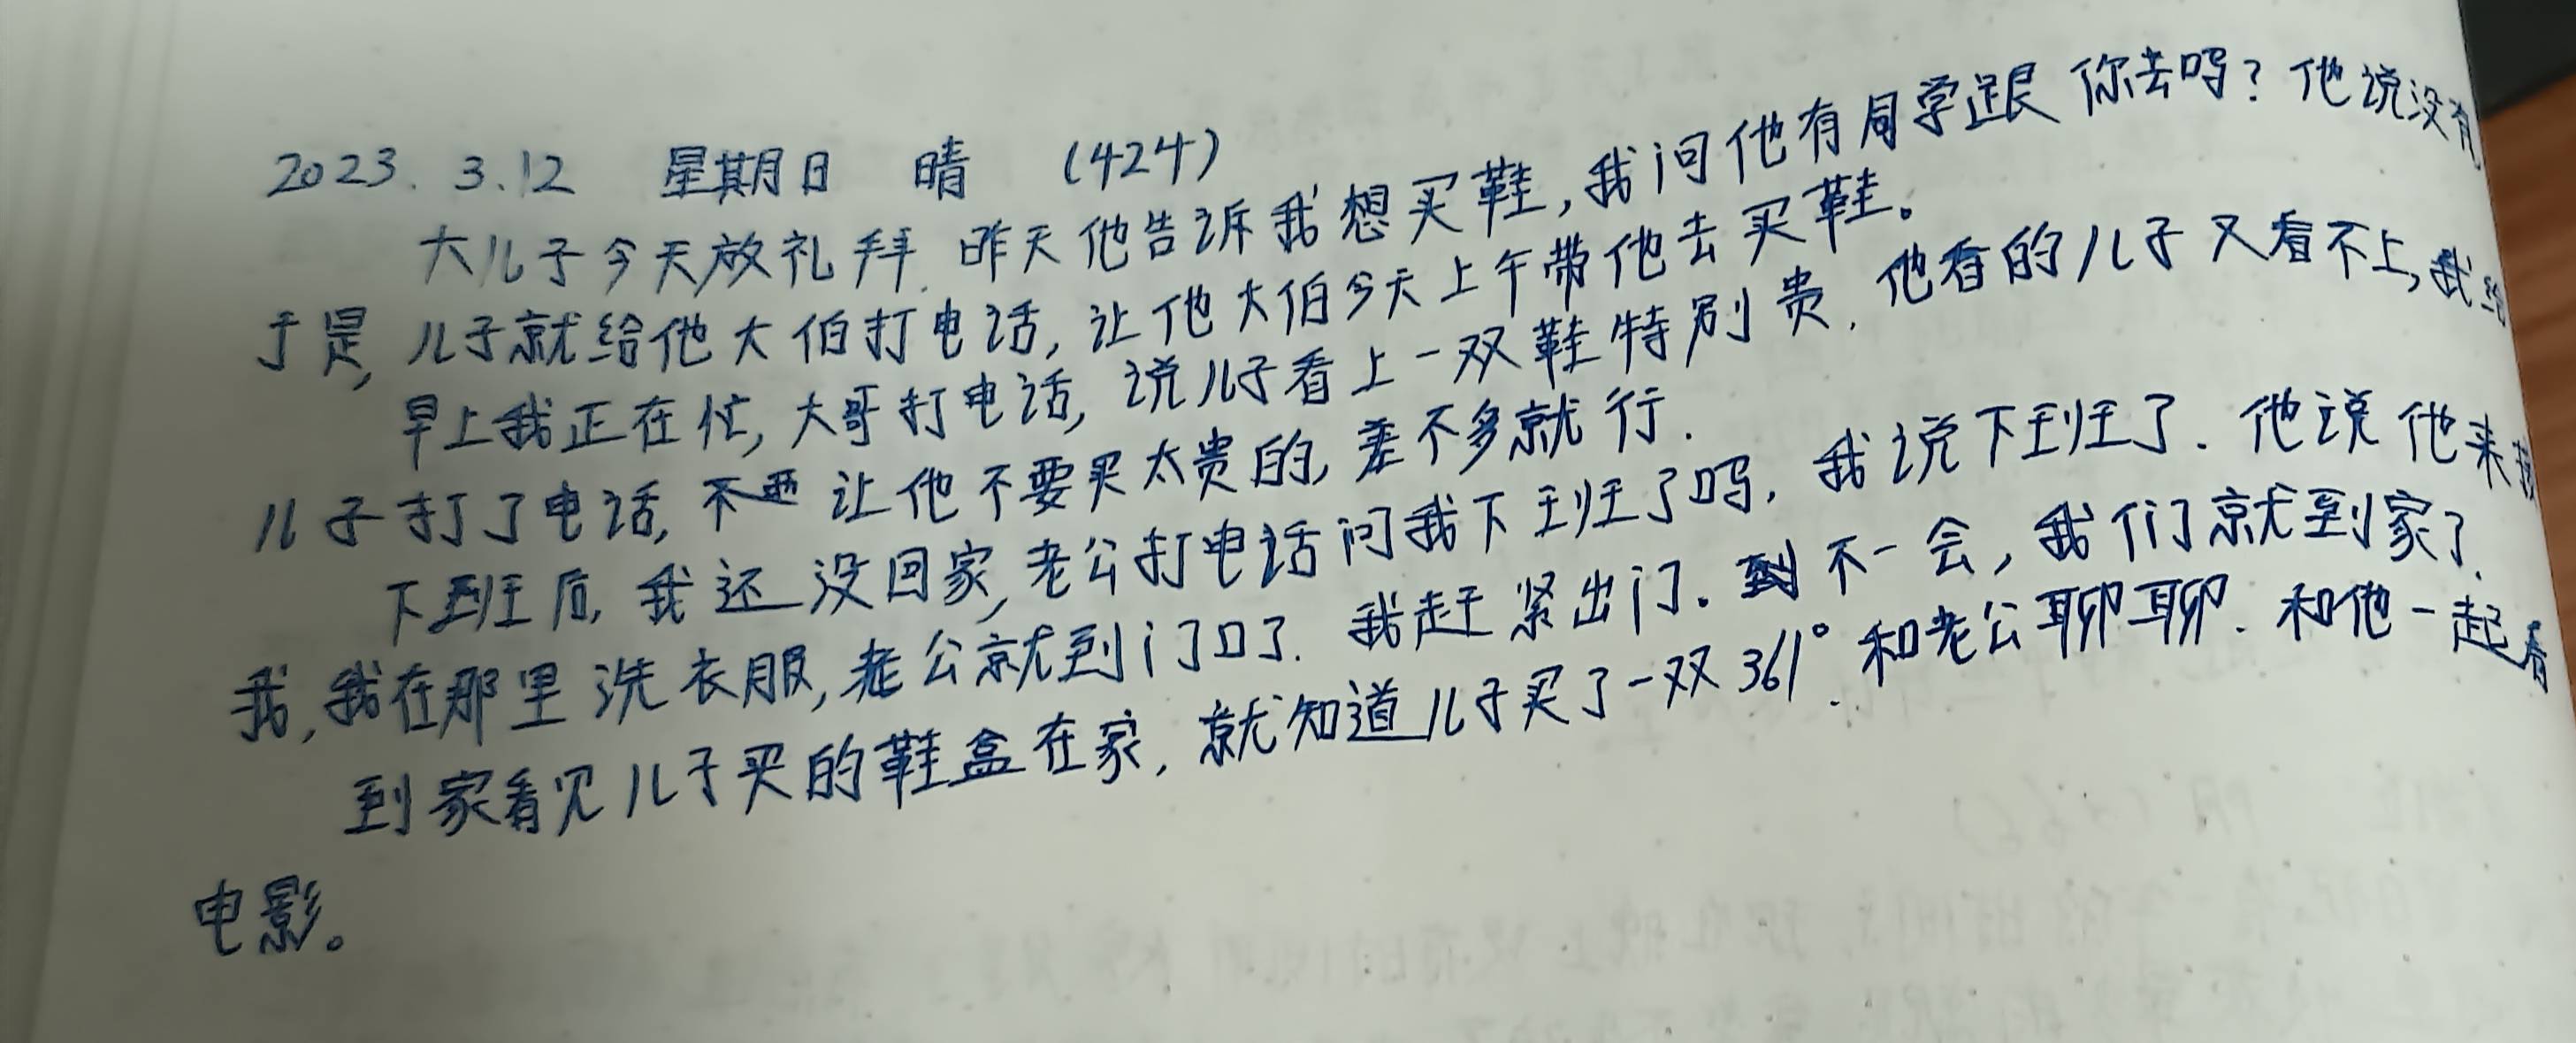 2023.3.12 星期日 晴 (424)
大儿子今天放礼拜.昨天他告诉我想买鞋,我问他有同学跟你去吗?他说没有
于是,儿子就给他大伯打电话,让他大伯今天上午带他去买鞋。
早上我正在忙,大哥打电话,说儿子看上一双鞋特别贵.他看的儿子又看不上,我给
儿子打了电话,不要让他不要买太贵的,差不多就行.
下班后,我还没回家,老公打电话问我下班了吗,我说下班了.他说他来接
我,我在那里洗衣服,老公就到门口了.我赶紧出门.不一会,我们就到家了.
到家看见儿子买的鞋盒在家,就知道儿子买了一双361°.和老公聊聊.和他一起看
电影。